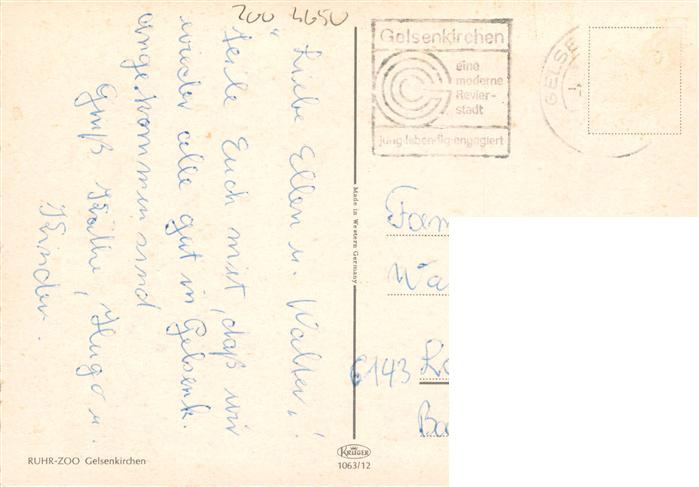 ZOO 4650
Liebe Ellen u. Walter,!
Teile Euch mit, daß wir
wieder alle gut in Gelsenk.
angekommen sind
Gruß Käthe, Hugo u.
Kinder.
Gelsenkirchen
eine
moderne
Revier-
stadt
jung·lebendig·engagiert
GELSE
Made in Western Germany
Fam
Wa
6143 Lo
RUHR-ZOO Gelsenkirchen
KRÜGER
1063/12